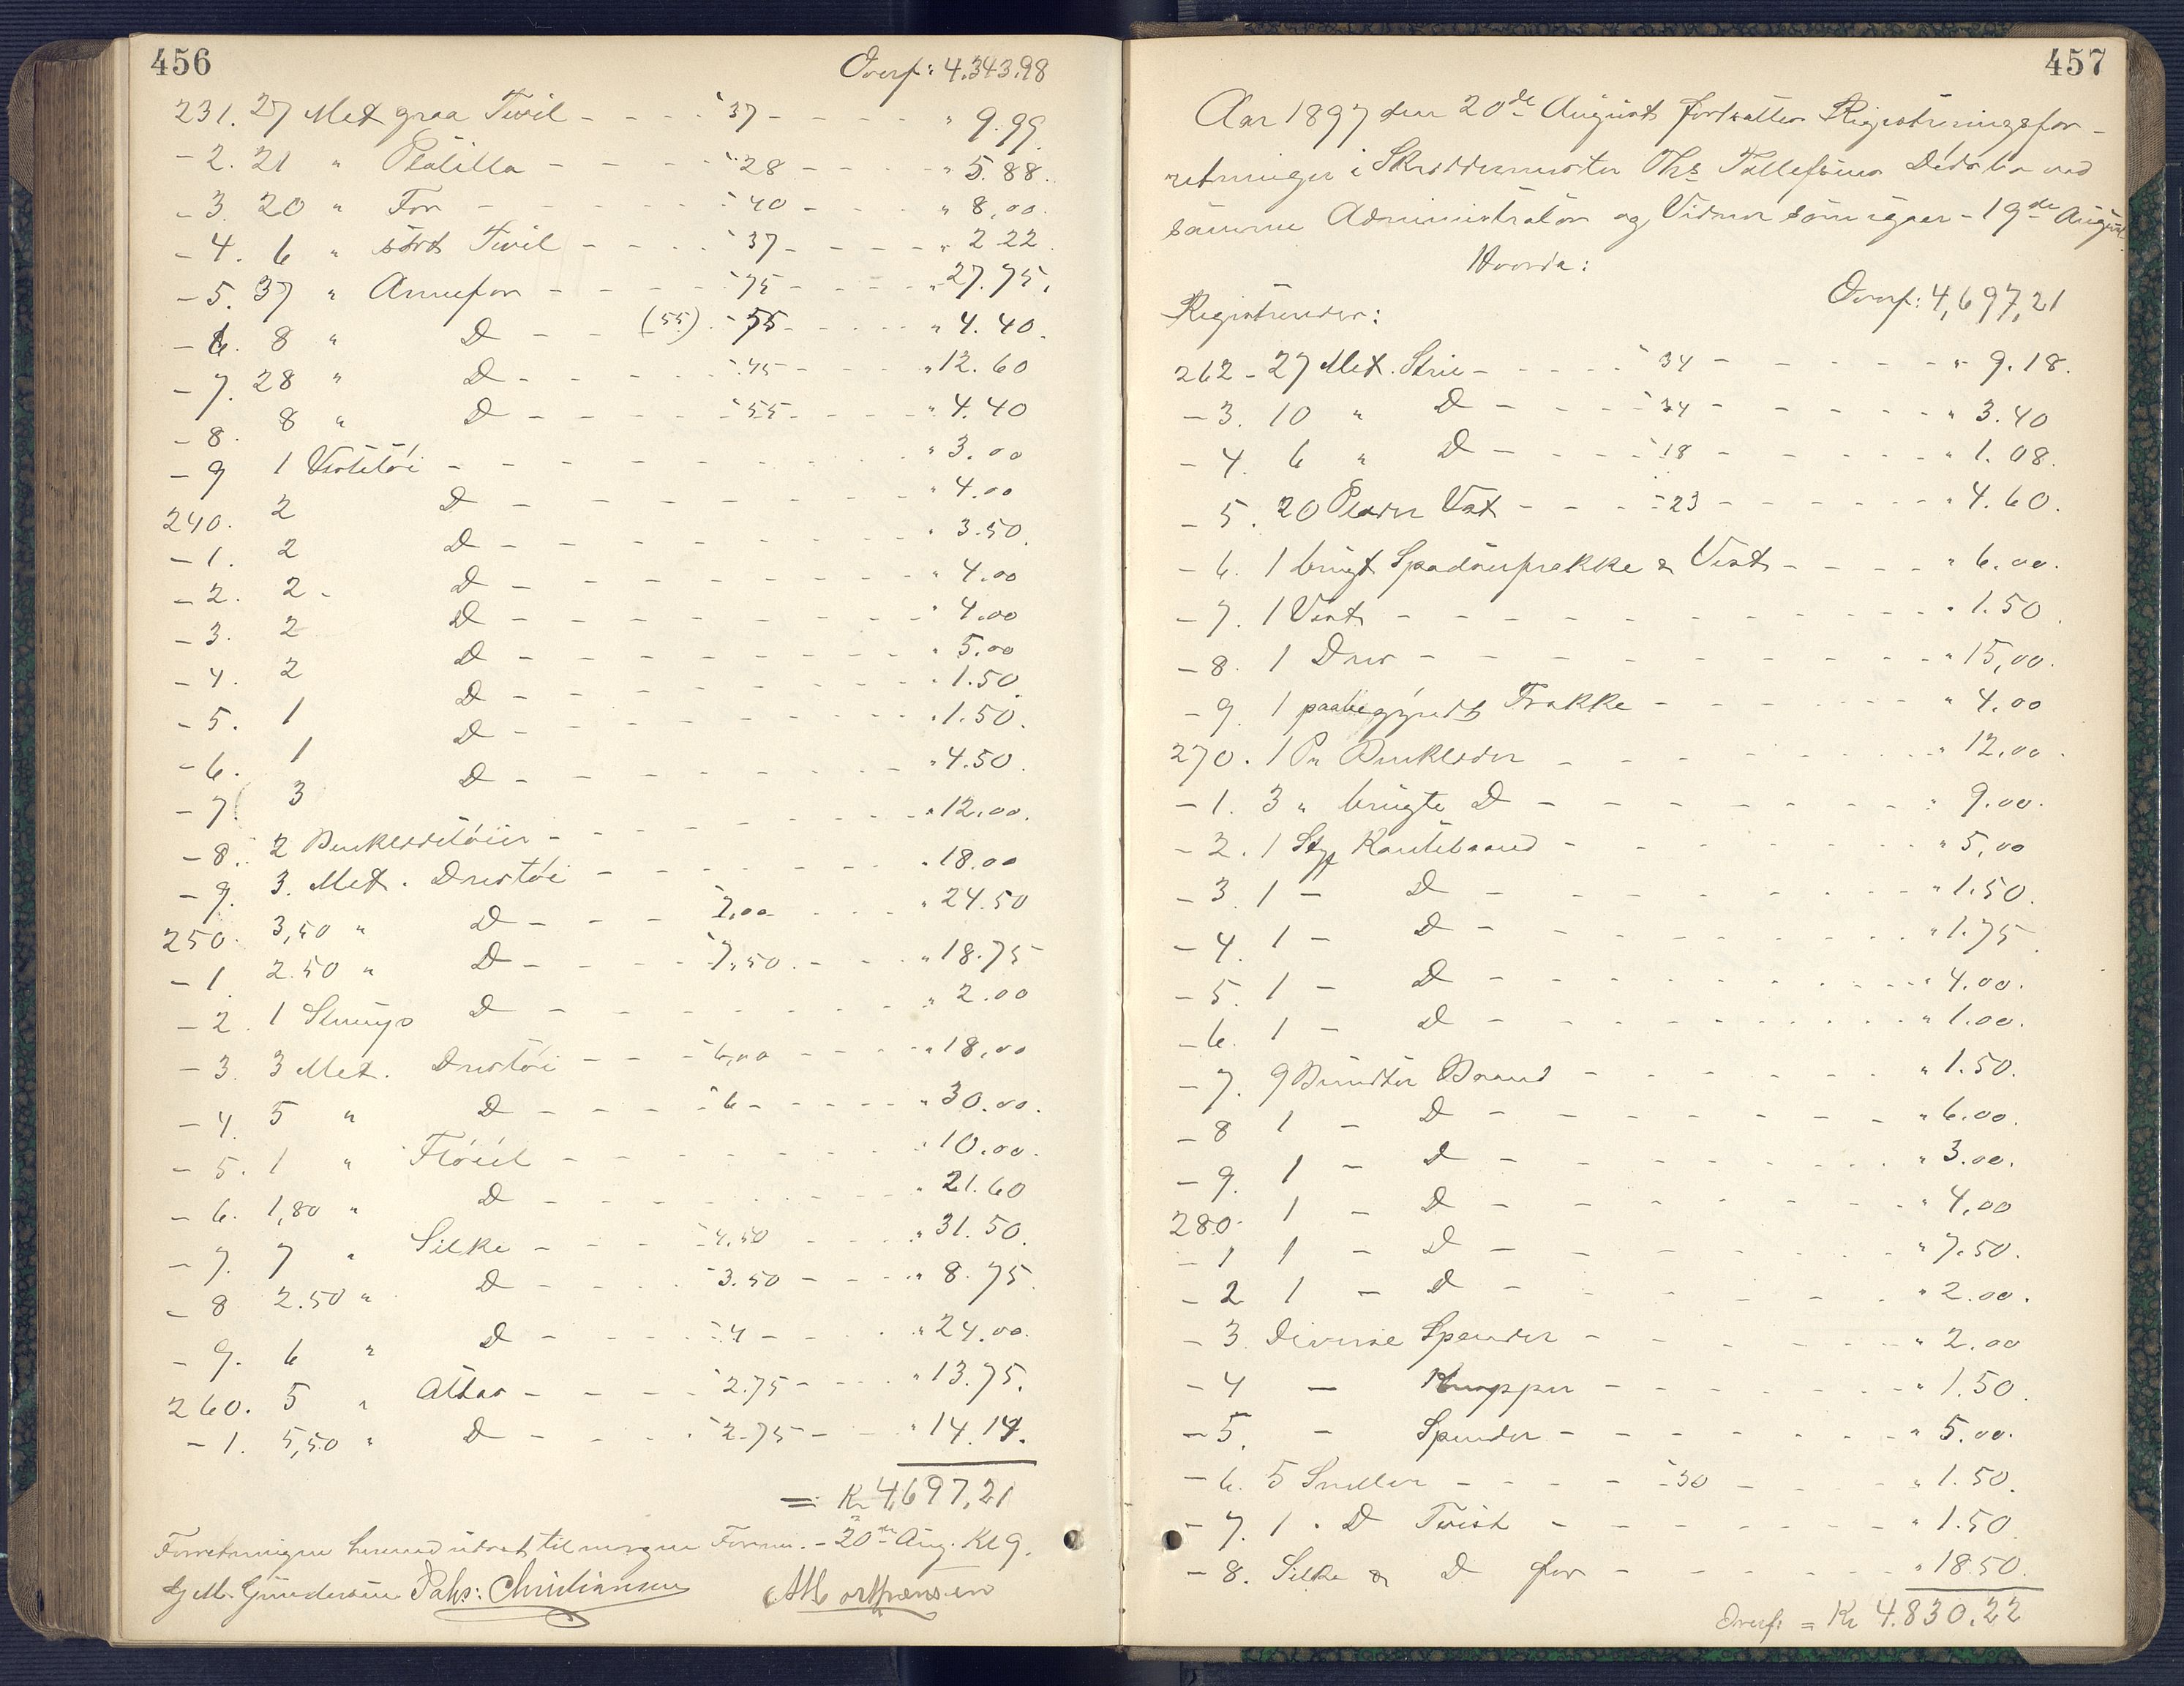 456
Overf: 4.343.98
231. 27 Met graa Tvil - - - - " 37 - - - - " 9.99.
- 2. 21 " Platilla - - - - " 28 - - - - " 5.88.
- 3. 20 " For - - - - " 40 - - - - " 8,00.
- 4. 6 " sort Tvil - - - - " 37 - - - - " 2.22.
- 5. 37 " Armefor - - - - " 75 - - - - " 27.75.
- 6. 8 " D - - (55) - 55 - - - - " 4.40.
- 7. 28 " D - - - - " 45 - - - - " 12.60
- 8. 8 " D - - - - " 55 - - - - " 4.40
- 9 1 Vestetöi - - - - " 3.00
240. 2 D - - - - " 4.00
- 1. 2 D - - - - " 3.50.
- 2. 2 - D - - - - " 4.00
- 3. 2 D - - - - " 4.00
- 4. 2 D - - - - " 5.00
- 5. 1 D - - - - " 1.50.
- 6. 1 D - - - - " 1.50.
- 7. 3 D - - - - " 4.50.
- 8. 2 Benklædetöier - - - - " 12.00.
- 9. 3. Met. Drestöi - - - - " 18.00
250. 3,50 " D - - - " 7,00 - - - " 24.50
- 1. 2.50 " D - - - - " 7,50. - - - " 18.75
- 2. 1 Stump D - - - - " 2.00
- 3. 3 Met. Drestöi - - - " 6,00 - - - - " 18,00
- 4. 5 " D - - - - " 6 - - - - " 30.00.
- 5. 1 " Flöiel - - - - " 10.00.
- 6. 1,80 " D - - - - " 21.60
- 7. 7 " Silke - - - " 4,50 - - - " 31.50.
- 8 2.50 " D - - - - " 3.50 - - - " 8.75.
- 9. 6 " D - - - - " 4 - - - " 24.00.
260. 5 " Atlas - - - - " 2.75 - - - " 13.75.
- 1. 5,50 " D - - - - " 2.75 - - " 14.14.
= Kr 4,697,21
Forretningen herved udsat til morgen Form. - 20de Aug. Kl 9.
M. Gundersen Pahs: Christiansen A Morthensen
457
Aar 1897 den 20de August fortsattes Registreringsfor-
retningen i Skræddermester Ths Tollefsens Dødsbo ved
samme Administrator og Vidner som igaar - 19de August
Hvorda:
Registreredes:
Overf: 4,697,21
262 - 27 Met. Strie - - - - " 34 - - - - " 9.18.
- 3. 10 " D - - - " 34 - - - - " 3.40
- 4. 6 " D - - - - " 18 - - - - " 1.08.
- 5. 20 Plader Vat - - - " 23 - - - - " 4.60.
- 6. 1 brugt Spadserfrakke & Vest - - - - " 6.00.
- 7. 1 Vest - - - - " 1.50.
- 8. 1 Dres - - - - " 15,00.
- 9. 1 paabegyndt Frakke - - - - " 4.00
270. 1 Pr Benklæder - - - - " 12.00.
- 1. 3 " brugte D - - - - " 9.00.
- 2. 1 Stk Kantebaand - - - - " 5,00
- 3. 1 - D - - - - " 1.50.
- 4. 1 - D - - - - " 1.75.
- 5. 1 - D - - - - " 4.00.
- 6. 1 - D - - - - " 1.00.
- 7. 9 Bundter Baand - - - - " 1.50.
- 8 1 - D - - - - " 6.00.
- 9. 1 - D - - - - " 3.00.
280. 1 - D - - - - " 4,00
- 1 1 - D - - - - " 7.50.
- 2 1 - D - - - - " 2.00.
- 3 Diverse Spender - - - - " 2.00
- 4 - Knapper - - - - " 1.50.
- 5. - Spender - - - - " 5.00.
- 6. 5 Sneller - - - - " 30 - - - " 1.50.
- 7. 1 " D Tvist - - - - " 1.50.
- 8. Silke & D for - - - - " 18.50.
Overf = Kr 4.830.22